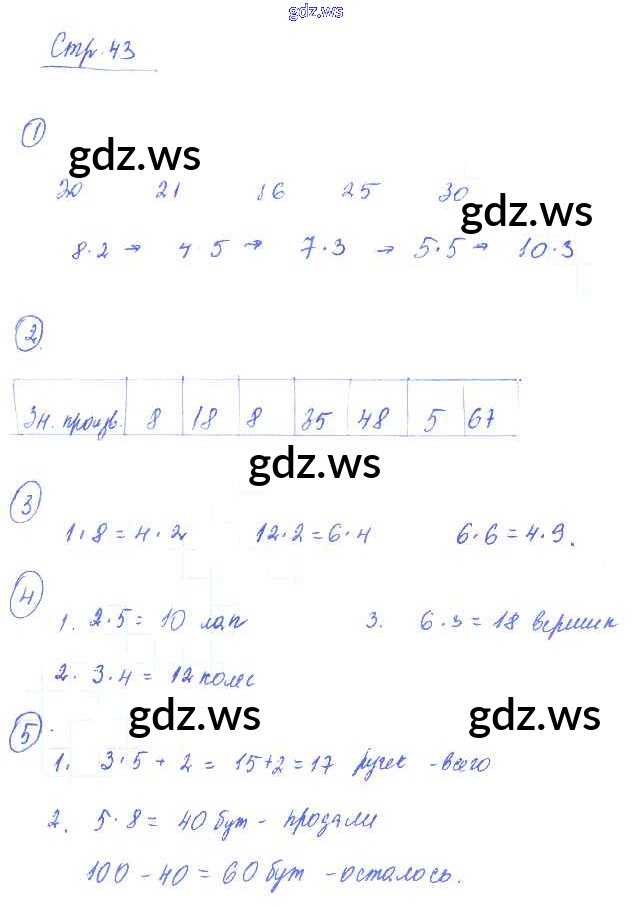 gdz.ws
Стр. 43
1
gdz.ws
20 21 16 25 30
gdz.ws
8·2 → 4·5 → 7·3 → 5·5 → 10·3
2
Зн. произв. 8 18 8 35 48 5 67
gdz.ws
3
1·8 = 4·2 12·2 = 6·4 6·6 = 4·9.
4
1. 2·5 = 10 лап 3. 6·3 = 18 вершин
2. 3·4 = 12 колес
gdz.ws gdz.ws
5
1. 3·5 + 2 = 15+2 = 17 ручек - всего
2. 5·8 = 40 бут - продали
100 - 40 = 60 бут - осталось.